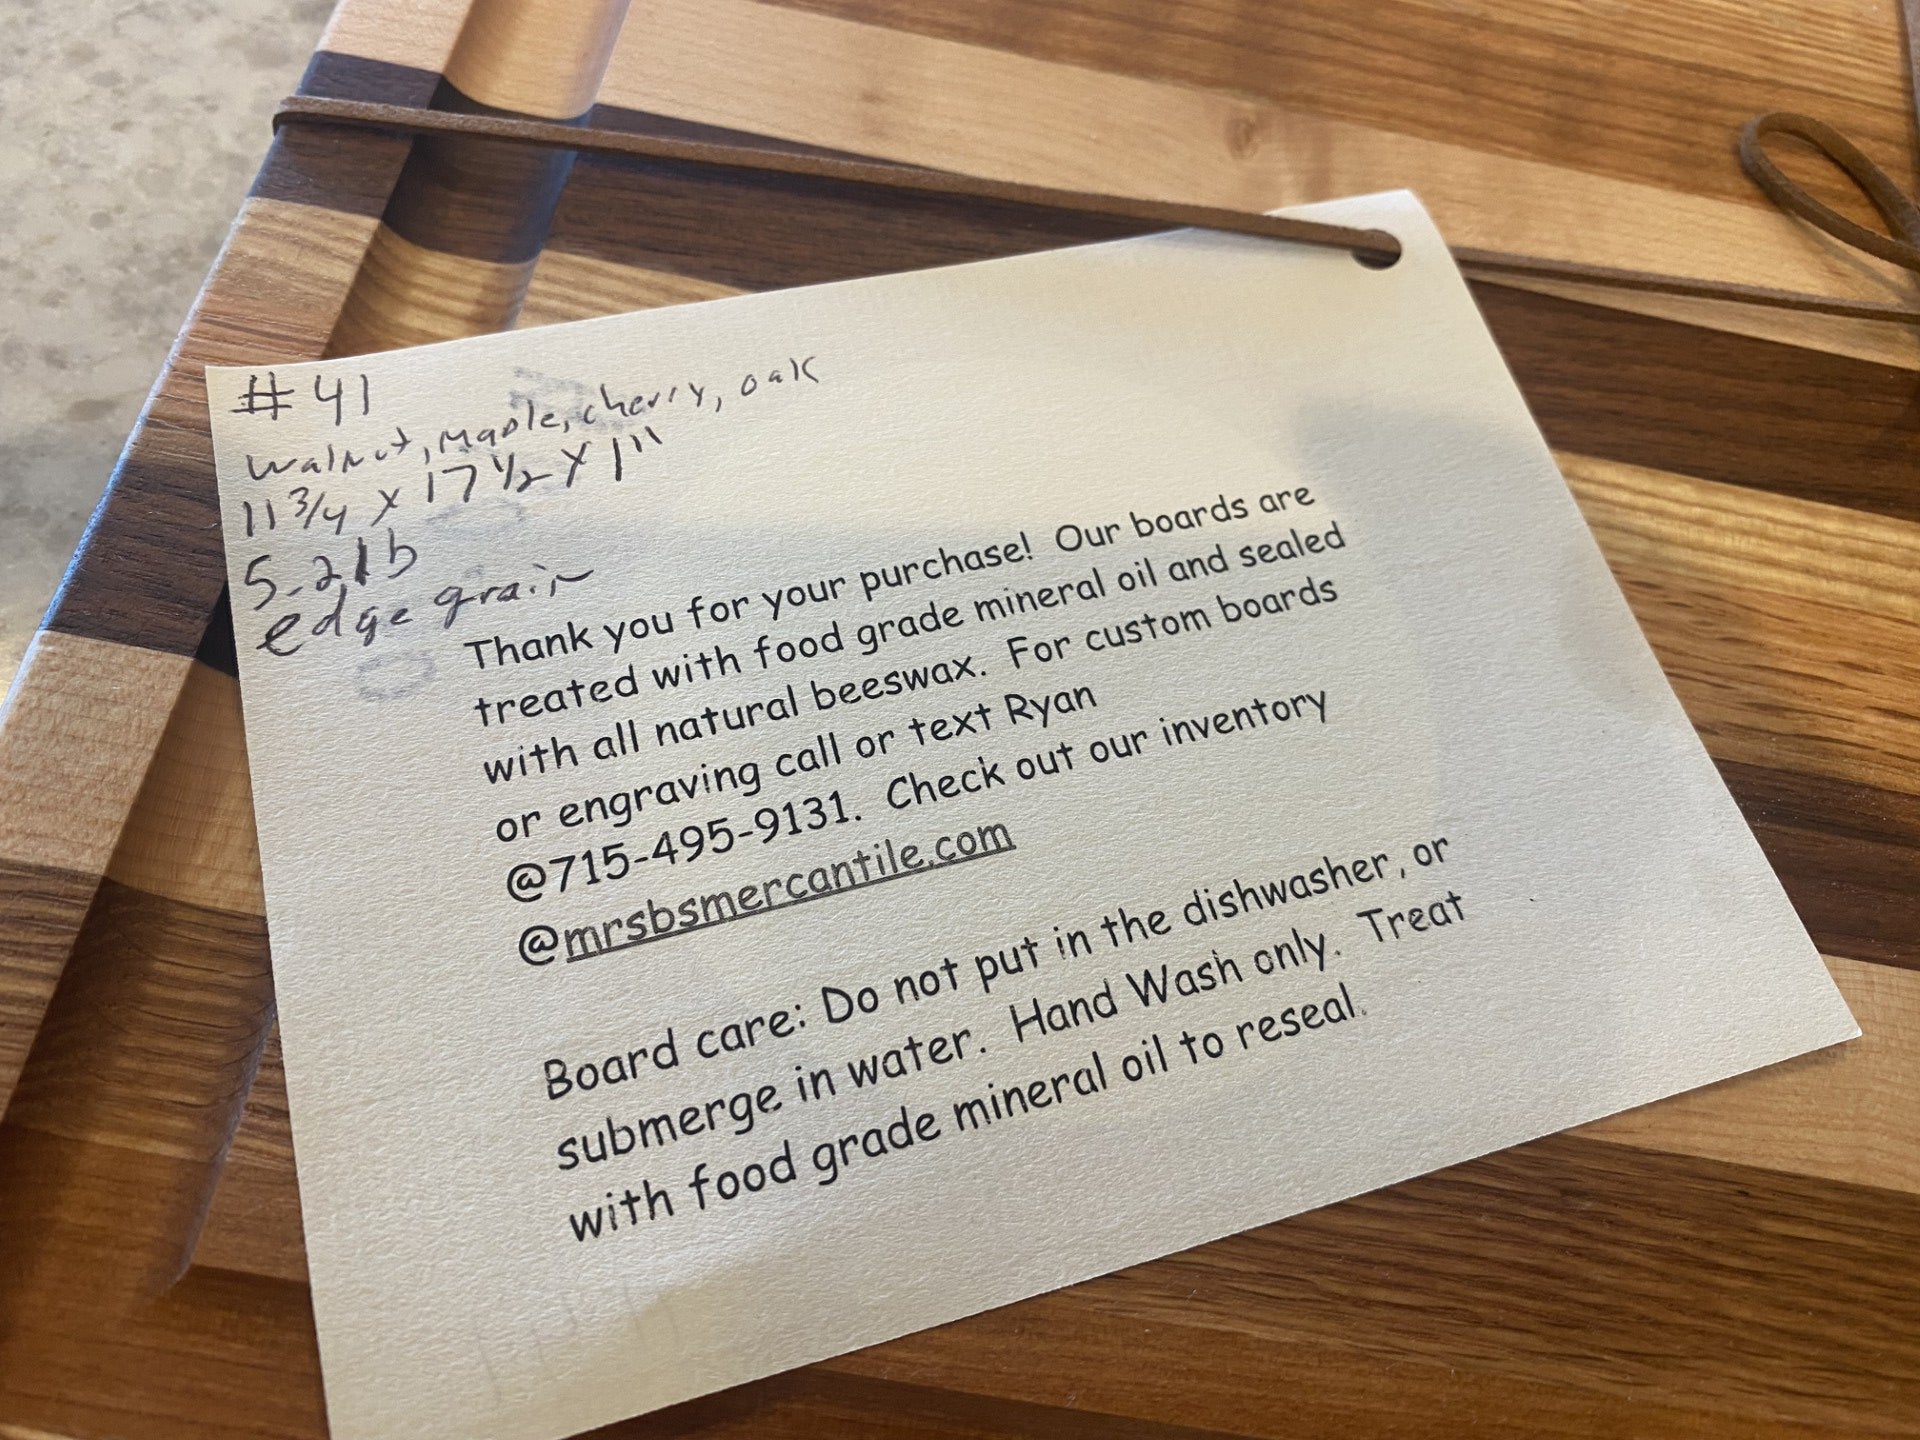 #41
walnut, maple, cherry, oak
11 3/4 x 17 1/2 x 1"
5.21b
edge grain
Thank you for your purchase! Our boards are
treated with food grade mineral oil and sealed
with all natural beeswax. For custom boards
or engraving call or text Ryan
@715-495-9131. Check out our inventory
@mrsbsmercantile.com
Board care: Do not put in the dishwasher, or
submerge in water. Hand Wash only. Treat
with food grade mineral oil to reseal.